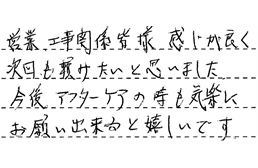 営業、工事関係皆様 感じが良く
次回も頼みたいと思いました
今後、アフターケアの時も気楽に
お願い出来ると嬉しいです